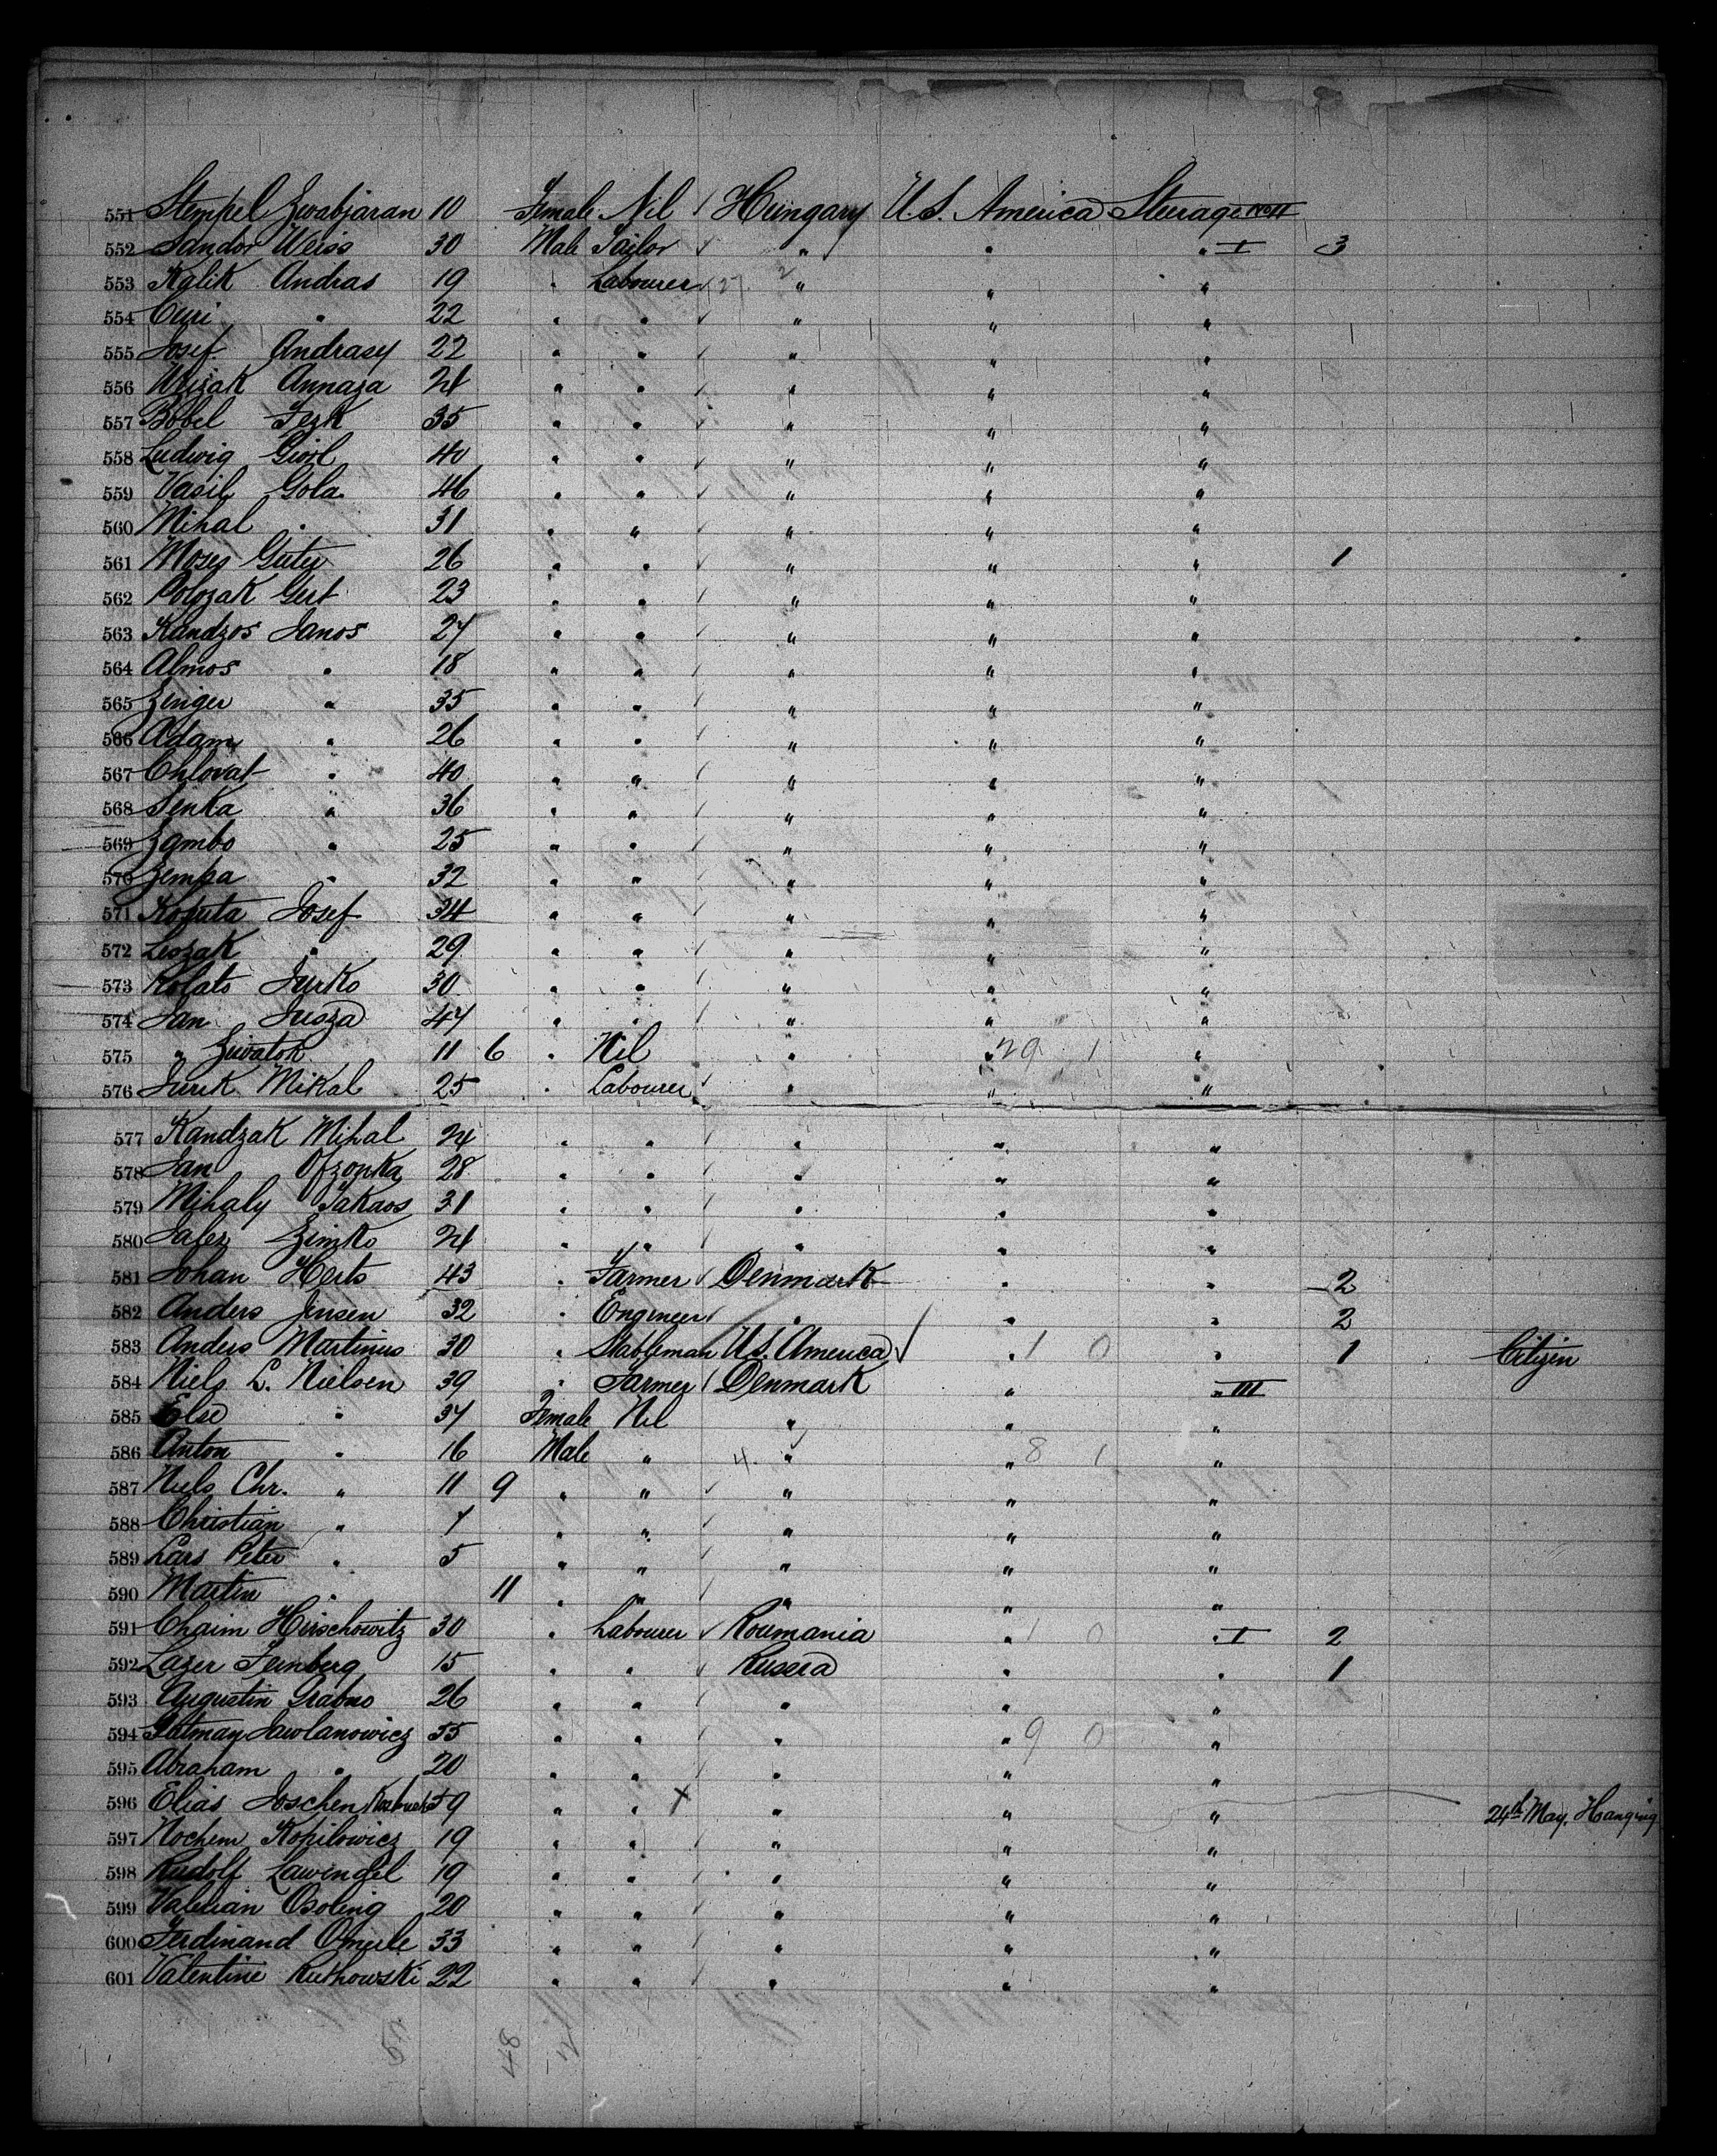 551 Stempel Zwabjaran 10 Female Nil / Hungary U.S. America Steerage No II
552 Sandor Weiss 30 Male Tailor " " " I 3
553 Kalik Andras 19 " Labourer " " "
554 Curi " 22 " " " " "
555 Josef Andrasy 22 " " " " "
556 Annaza 24 " " " " "
557 Bobel 35 " " " " "
558 Ludwig 40 " " " " "
559 Vasil Gola 46 " " " " "
560 Mihal " 31 " " " " "
561 Moses Guter 26 " " " " " 1
562 Polozak Gert 23 " " " " "
563 Kandzos Janos 27 " " " " "
564 Almos " 18 " " " " "
565 Zenger " 35 " " " " "
566 Adam " 26 " " " " "
567 Chlovat " 40 " " " " "
568 Senka " 36 " " " " "
569 Zambo " 25 " " " " "
570 Zempa " 32 " " " " "
571 Kozuta Josef 34 " " " " "
572 Leszak " 29 " " " " "
573 Kofats Jurko 30 " " " " "
574 Jan Jusza 47 " " " " "
575 " Zuvatok 11 6 " Nil " " 29 1 "
576 Jurk Mikal 25 " Labourer " " "
577 Kandzak Mihal 24 " " " " "
578 Jan Ofzonka 28 " " " " "
579 Mihaly Takaos 31 " " " " "
580 Zimko 24 " " " " "
581 Johan Herts 43 " Farmer Denmark " " 2
582 Anders Jensen 32 " Engineer " " " 2
583 Anders Martinus 30 " Stableman U.S. America " 1 0 " 1 Citizen
584 Niels L. Nielsen 39 " Farmer Denmark " " III
585 Else " 37 Female Nil " " "
586 Anton " 16 Male " 4 " " 8 1 "
587 Niels Chr. " 11 9 " " " " "
588 Christian " 7 " " " " "
589 Lars Peter " 5 " " " " "
590 Martin " 11 " " " " "
591 Chaim Hirschowitz 30 " Labourer Roumania " 1 0 " I 2
592 Lazer Feinberg 15 " " Russia " " 1
593 Augustin Grabno 26 " " " " "
594 Jawlanowicz 55 " " " " 9 0 "
595 Abraham " 20 " " " " "
596 Elias Joschen 59 " " X " " " 24th May, Hanging
597 Nochem Kopilowicz 19 " " " " "
598 Rudolf Lawendel 19 " " " " "
599 Valerian Osoling 20 " " " " "
600 Ferdinand Omule 33 " " " " "
601 Valentine Ruthowski 22 " " " " "
48